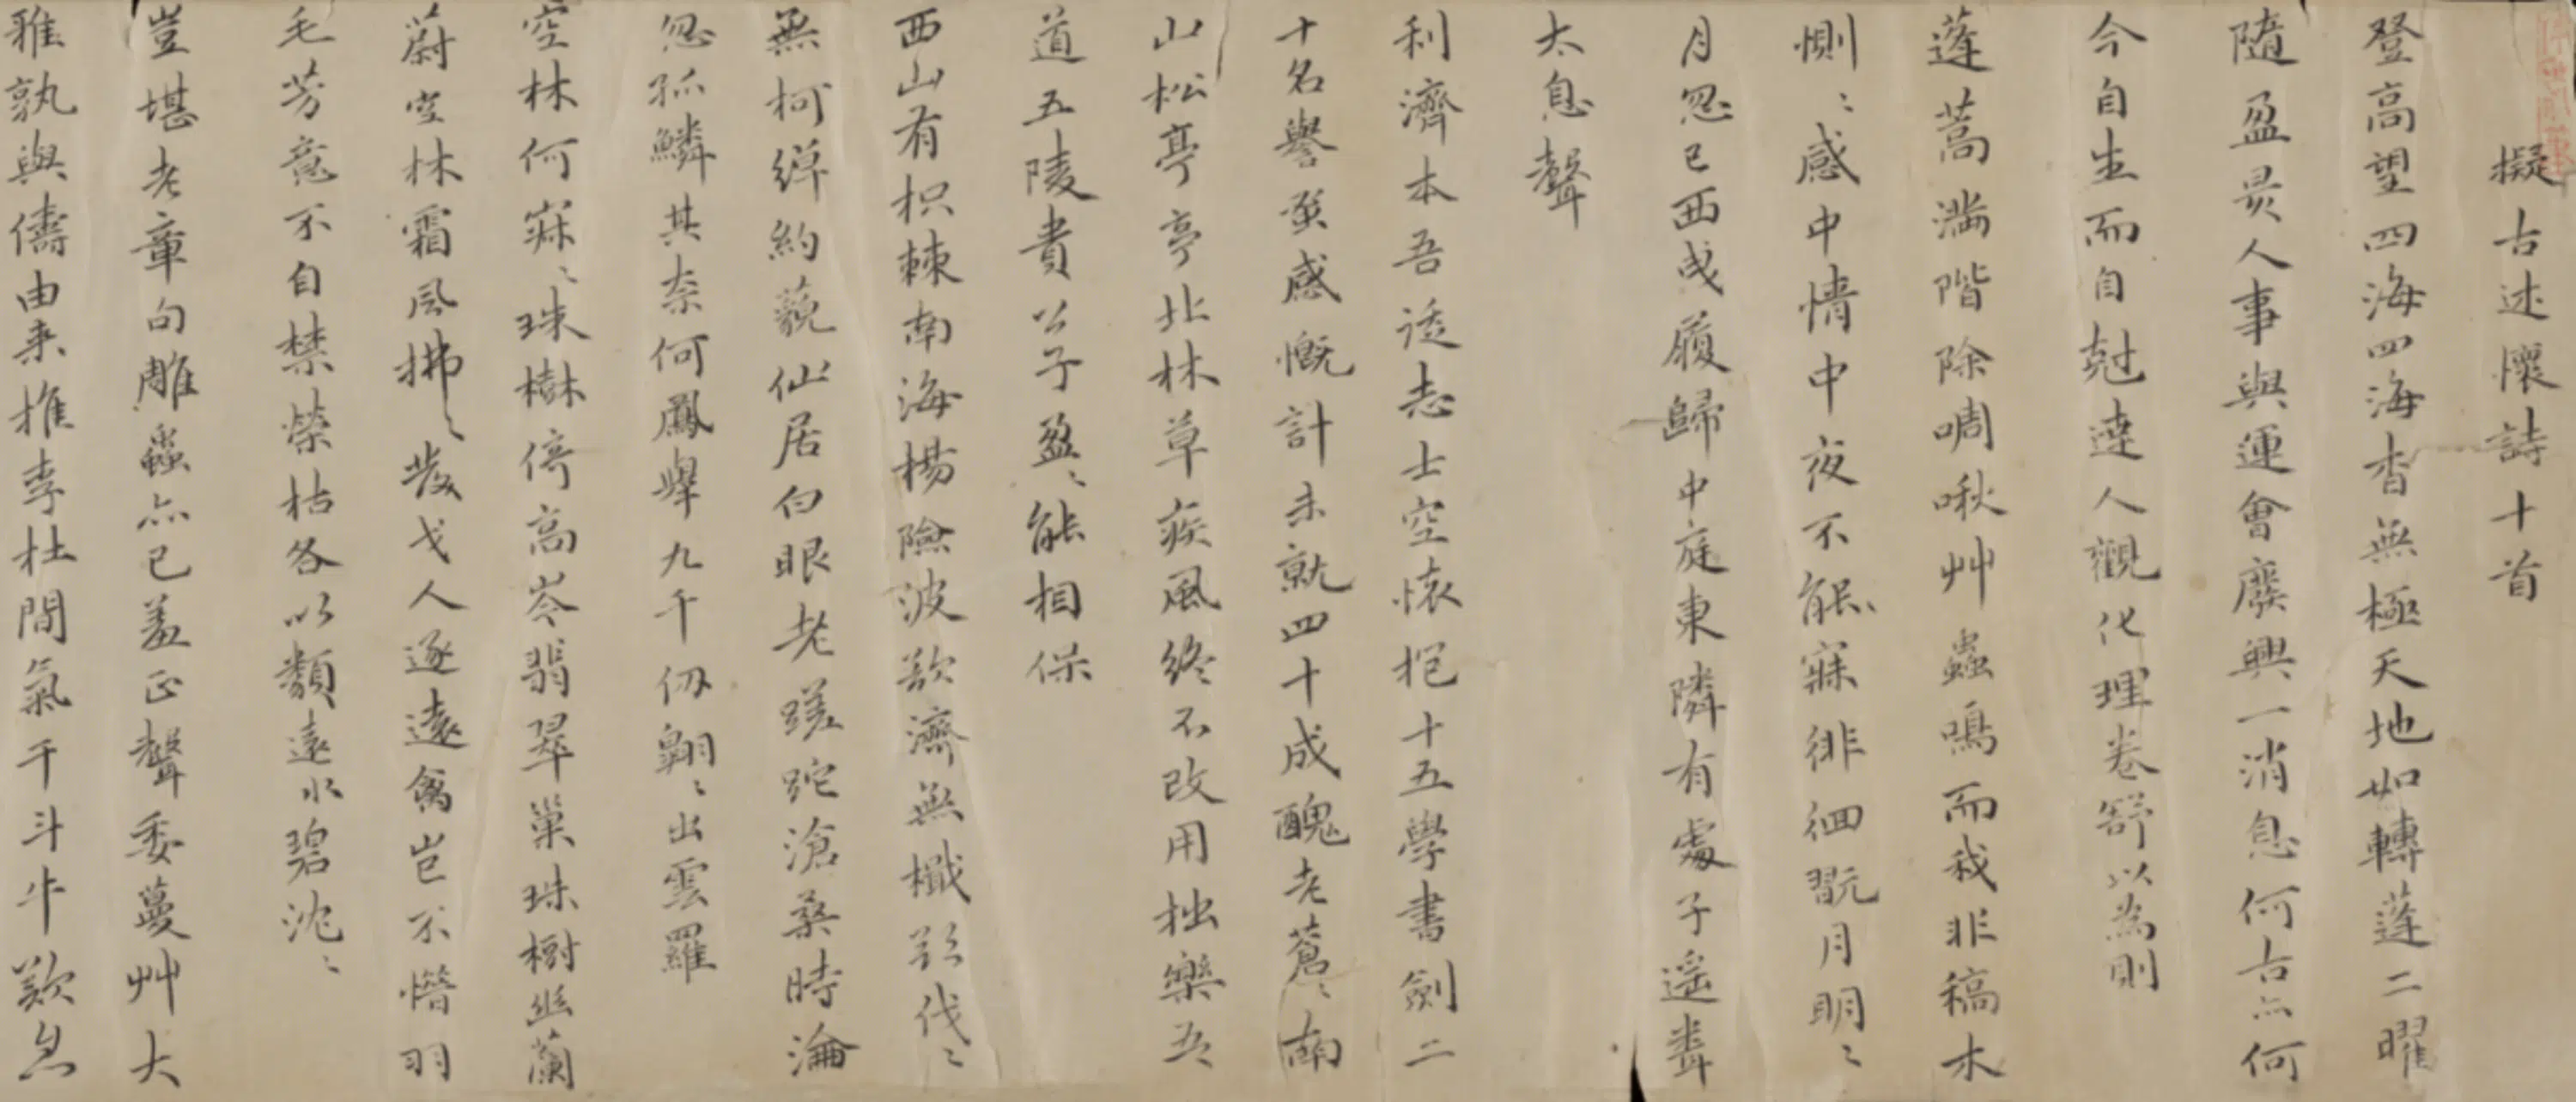 擬古述懷詩十首
登高望四海四海杳無極天地如轉蓬二曜
隨盈昃人事與運會廢興一消息何古亦何
今自生而自尅達人觀化理卷舒以為則
蓬蒿滿階除啁啾艸蟲鳴而我非稿木
惻〻感中情中夜不能寐徘徊翫月明〻
月忽已西成履歸中庭東隣有處子遥聋
太息聲
利濟本吾逺志士空懷抱十五學書劍二
十名譽蚤感慨計未就四十成醜老蒼〻南
山松亭亭北林草疾風終不改用拙樂吾
道五陵貴公子盈〻能相保
西山有枳棘南海楊險波欲濟無檝欲伐〻
無柯綽約藐仙居白眼老蹉跎滄桑時淪
忽孤鱗其奈何鳳舉九千仞翺〻出雲羅
空林何寂〻珠樹停高岑翡翠巢珠樹幽蘭
蔚空林霜風拂〻發弋人逐遠禽豈不惜羽
毛芳意不自禁榮枯各以類遠水碧沈〻
豈堪老章句雕蟲亦已羞正聲委蔓艸大
雅孰與儔由来推李杜間氣干斗牛歎息